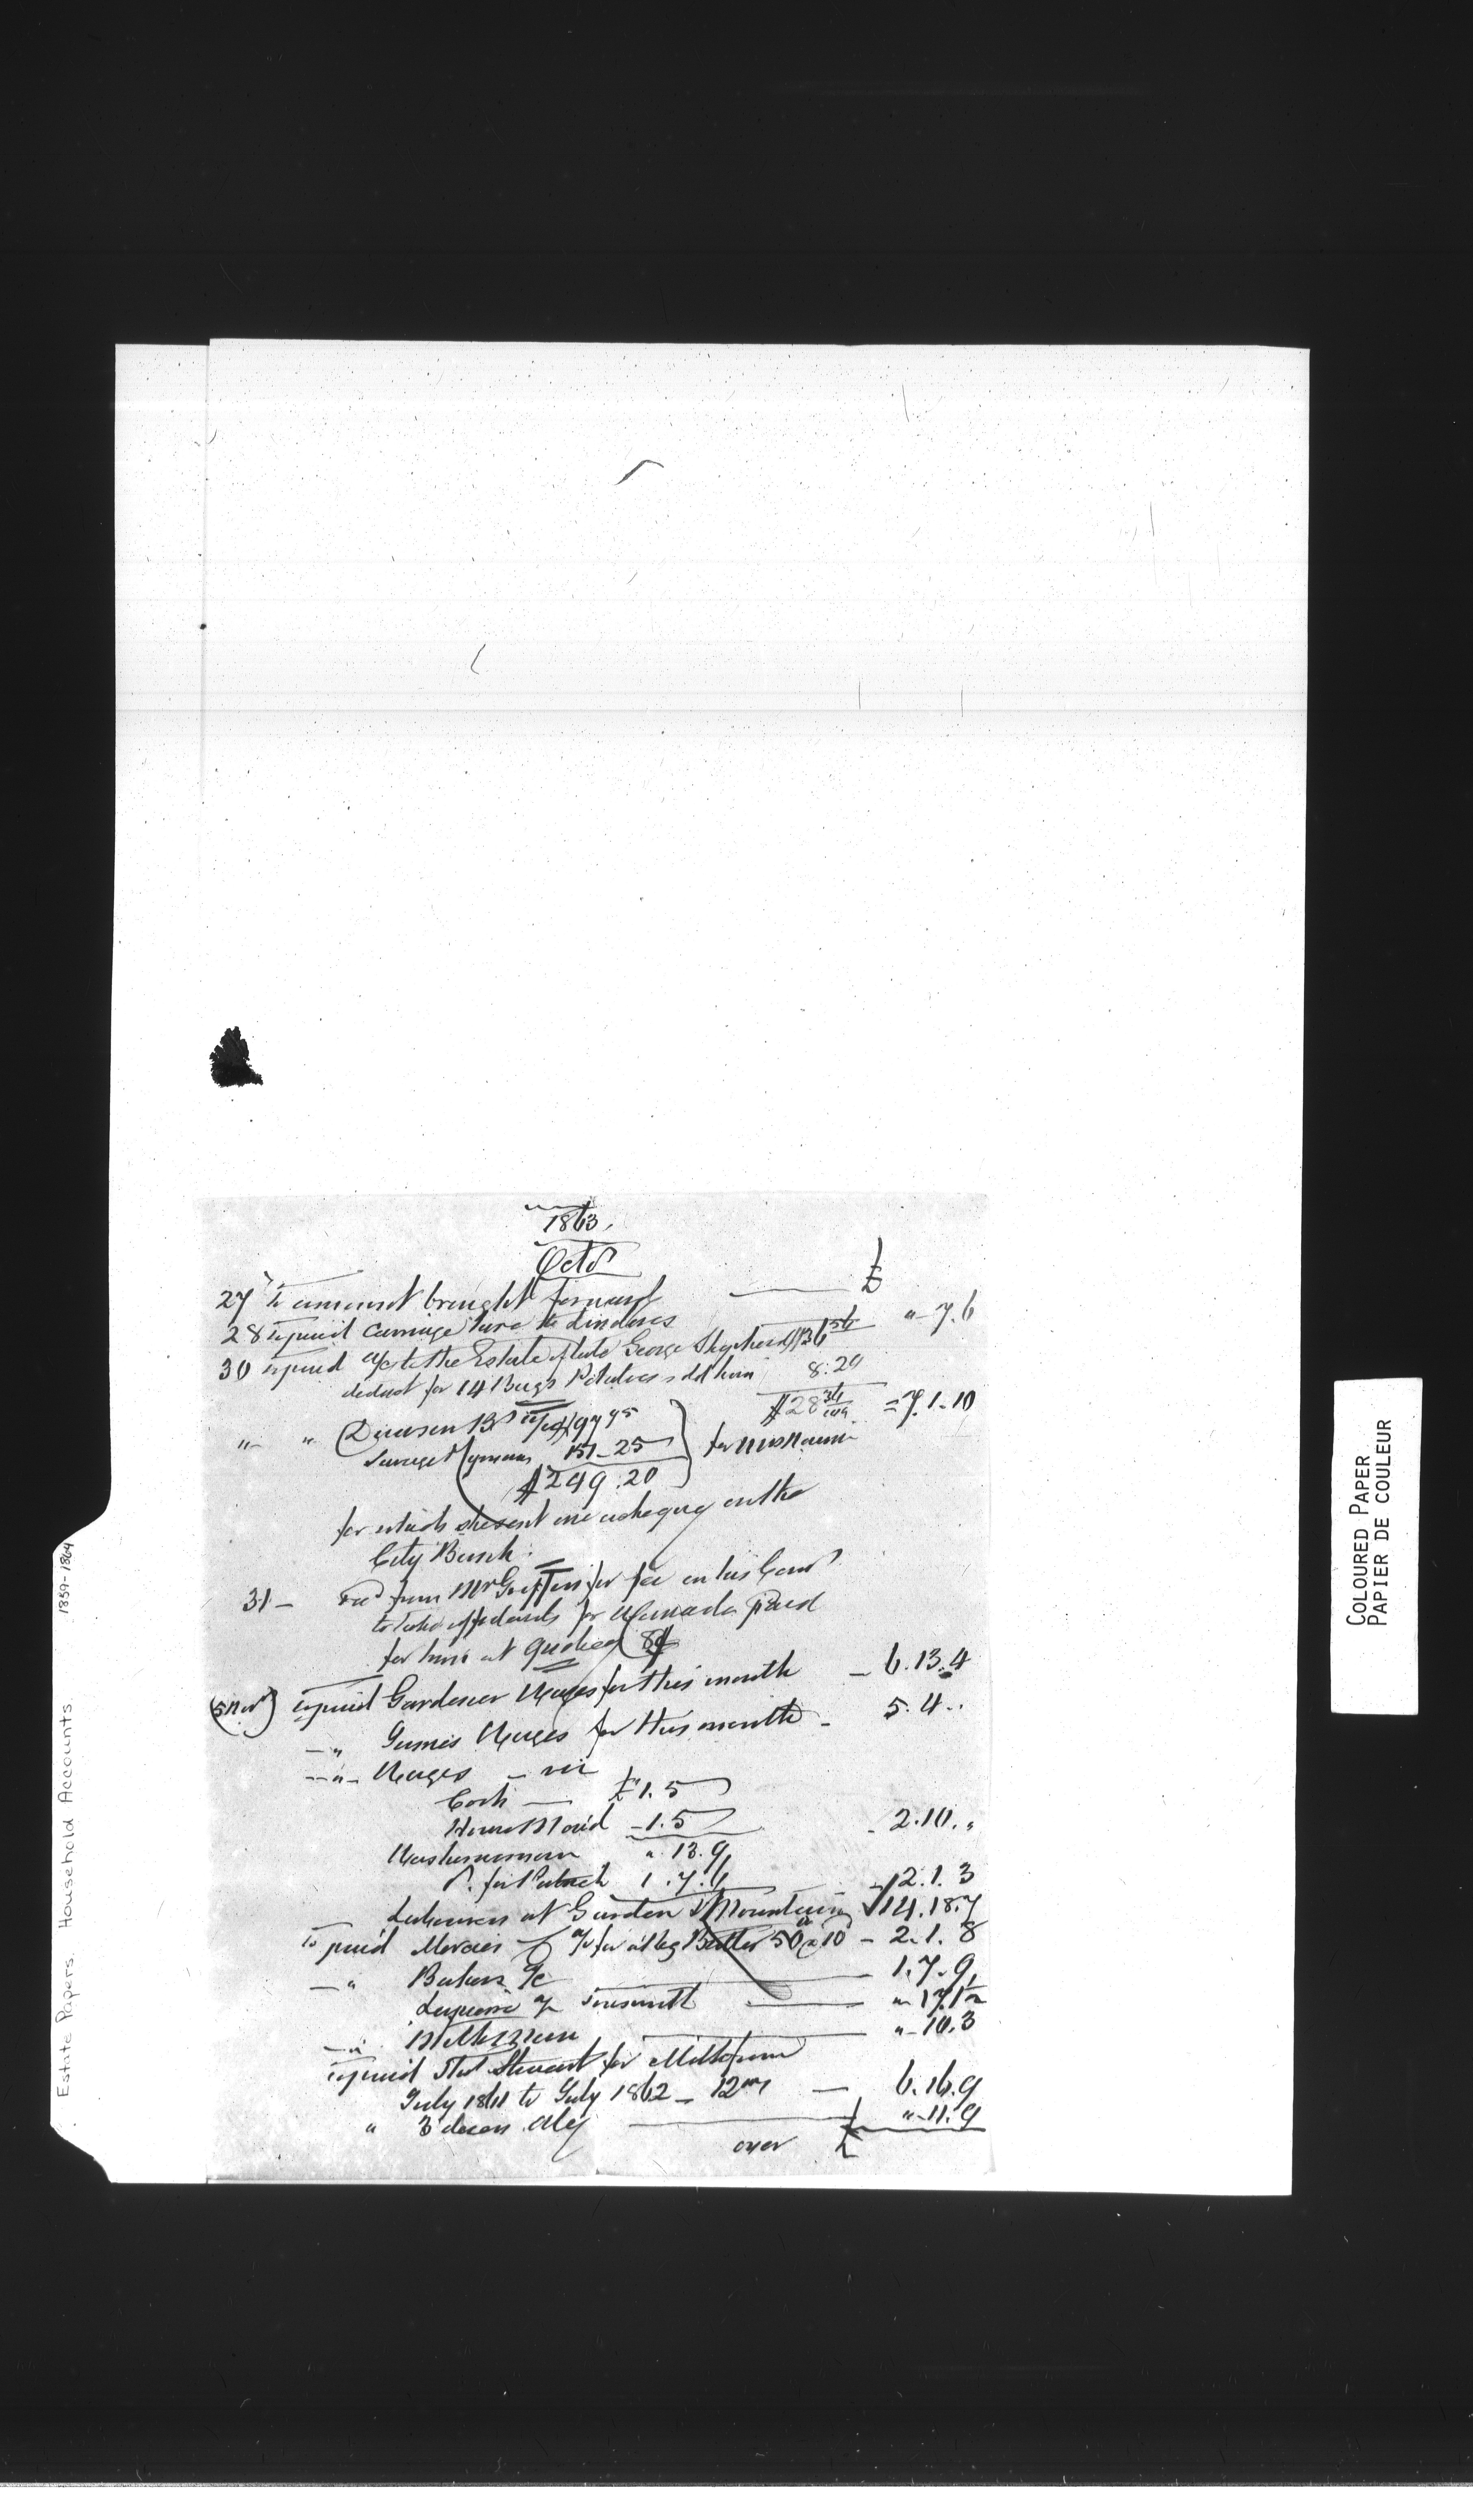 1863.
Octr
£
27 To amount brought forward
28 To paid Carriage hire to Lindores " - 7.6
30 To paid a/c to the Estate of late George Shepherd $36 56
deduct for 14 Bags Potatoes sold him 8.20
$28 36/100 = 7.1.10
" " a/c 97 95
Savage & Lyman 151-25 for Mrs
$249.20
for which I sent one cheque on the
City Bank.
31 - Recd from Mr Griffin for fee on his
to take affidavits for Canada paid
for him at Quebec 8$
(5 Nov) To paid Gardener Wages for this month - 6.13.4
-" James Wages for this month - 5.4..
-"- Wages - viz
Cook - £1.5
House Maid - 1.5 - 2.10."
Washerwoman " 13.9
Do. for 1.7.6 2.1.3
Labourers at Garden & Mountain 14.18.7
To paid Mercier a/c for a keg Butter 50 @ 10d - 2.1.8
-" Bakers a/c 1.7.9
a/c Tinsmith " 17.1
-" " - 10.3
To paid Stewart for
July 1861 to July 1862 - 12 ms - 6.16.9
" 3 dozen Ale " - 11.9
over £
Estate Papers. Household Accounts 1859-1864
COLOURED PAPER
PAPIER DE COULEUR